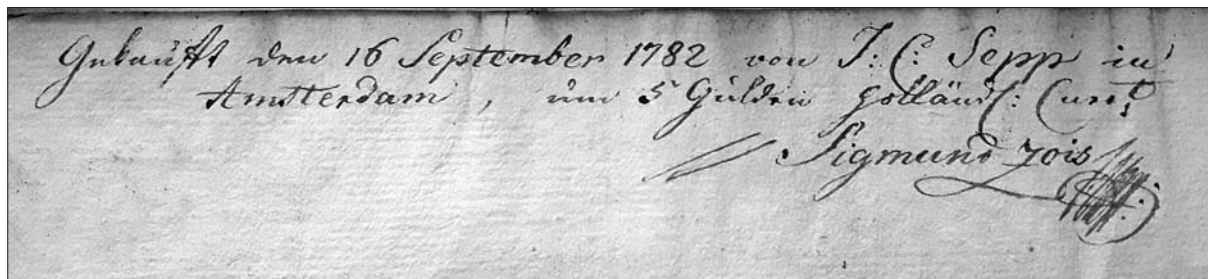 Gekauft den 16 September 1782 von J: C: Sepp in
Amsterdam, um 5 Gulden holländ: Curt
Sigmund Zois